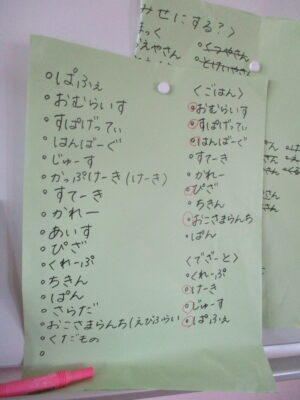 みせにする？〉
っく
えやさん
くつやさん
とけいやさん
ぱふぇ
おむらいす
すぱげってぃ
はんばーぐ
じゅーす
かっぷけーき(けーき)
すてーき
かれー
あいす
ぴざ
くれーぷ
ちきん
ぱん
さらだ
おこさまらんち(えびふらい
くだもの
〈ごはん〉
おむらいす
すぱげってぃ
はんばーぐ
すてーき
かれー
ぴざ
ちきん
おこさまらんち
ぱん
〈でざーと〉
くれーぷ
けーき
じゅーす
ぱふぇ